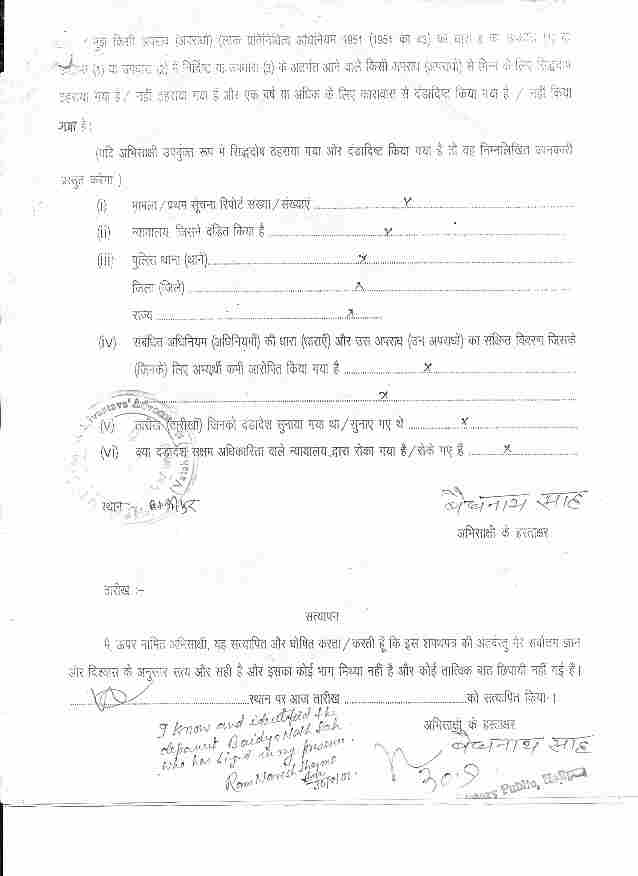 मुझे किसी अपराध (अपराधों) (लोक प्रतिनिधित्व अधिनियम 1951 (1951 का 43) की धारा 8 की
(1) या उपधारा (2) में निर्दिष्ट या उपधारा (3) के अंतर्गत आने वाले किसी अपराध (अपराधों) से भिन्न के लिए सिद्धदोष
ठहराया गया है / नहीं ठहराया गया है और एक वर्ष या अधिक के लिए कारावास से दंडादिष्ट किया गया है / नहीं किया
गया है।
(यदि अभिसाक्षी उपर्युक्त रूप में सिद्धदोष ठहराया गया और दंडादिष्ट किया गया है तो वह निम्नलिखित जानकारी
प्रस्तुत करेगा)
(i) मामला / प्रथम सूचना रिपोर्ट संख्या / संख्याएं x
(ii) न्यायालय जिसने दंडित किया है x
(iii) पुलिस थाना (थाने) x
जिला (जिले) x
राज्य x
(iv) संबंधित अधिनियम (अधिनियमों) की धारा (धाराएँ) और उस अपराध (उन अपराधों) का संक्षिप्त विवरण जिसके
(जिनके) लिए अभ्यर्थी कभी आरोपित किया गया है x
x
(v) तारीख (तारीखें) जिनको दंडादेश सुनाया गया था / सुनाए गए थे x
(vi) क्या दंडादेश सक्षम अधिकारिता वाले न्यायालय द्वारा रोका गया है / रोके गए हैं x
स्थान :-
बैद्यनाथ साह
अभिसाक्षी के हस्ताक्षर
तारीख :-
सत्यापन
मैं, ऊपर नामित अभिसाक्षी, यह सत्यापित और घोषित करता / करती हूँ कि इस शपथपत्र की अंतर्वस्तु मेरे सर्वोत्तम ज्ञान
और विश्वास के अनुसार सत्य और सही है और इसका कोई भाग मिथ्या नहीं है और कोई तात्विक बात छिपायी नहीं गई है।
स्थान पर आज तारीख को सत्यापित किया।
अभिसाक्षी के हस्ताक्षर
बैद्यनाथ साह
I know and identified the
deponent Baidya Nath Sah
who has signed in my presence.
Ram Naresh Sharma
30.9
Notary Public,